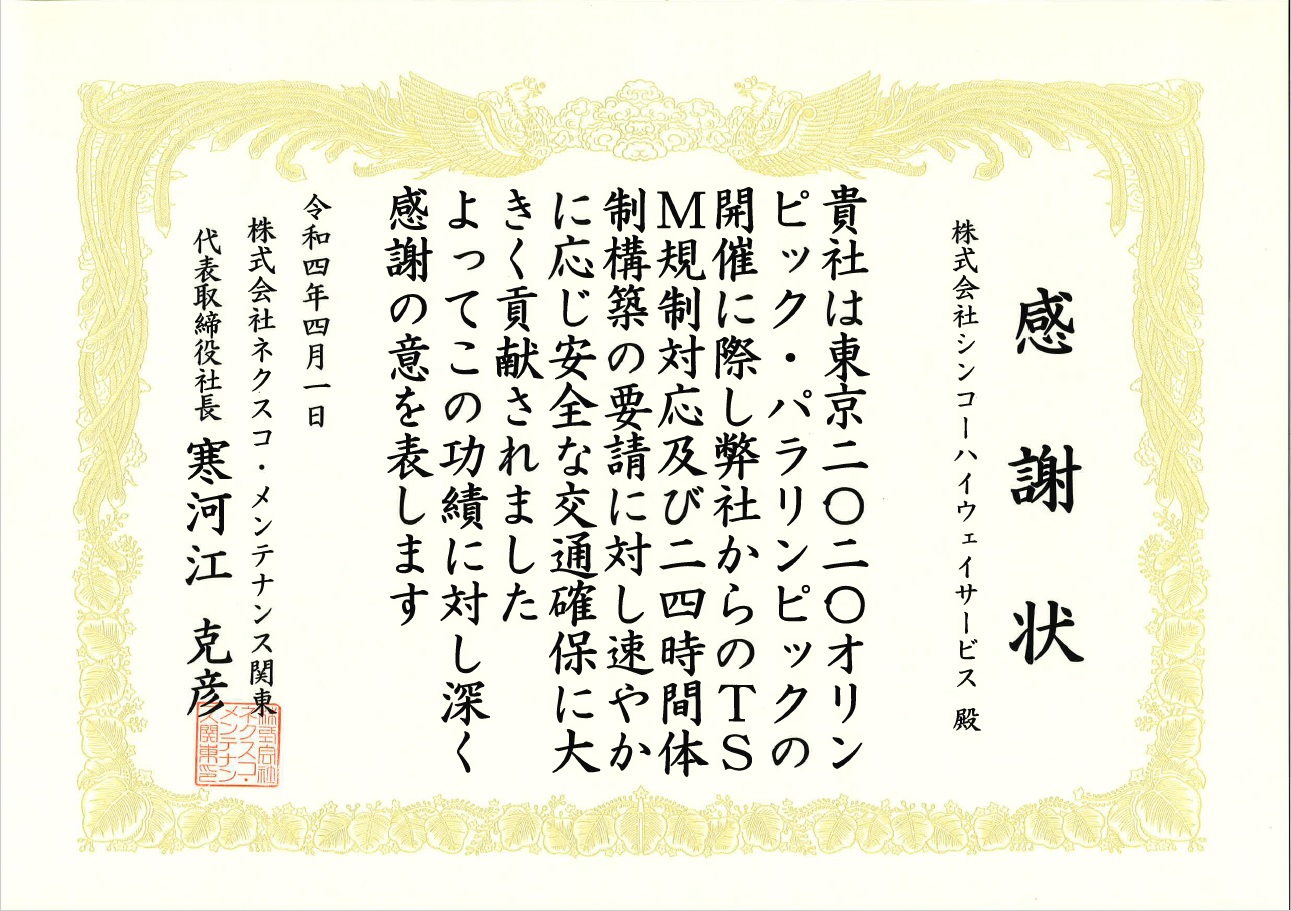 感謝状
株式会社シンコーハイウェイサービス 殿
貴社は東京二〇二〇オリン
ピック・パラリンピックの
開催に際し弊社からのTS
M規制対応及び二四時間体
制構築の要請に対し速やか
に応じ安全な交通確保に大
きく貢献されました
よってこの功績に対し深く
感謝の意を表します
令和四年四月一日
株式会社ネクスコ・メンテナンス関東
代表取締役社長 寒河江 克彦
株式会社
ネクスコ・
メンテナン
ス関東印